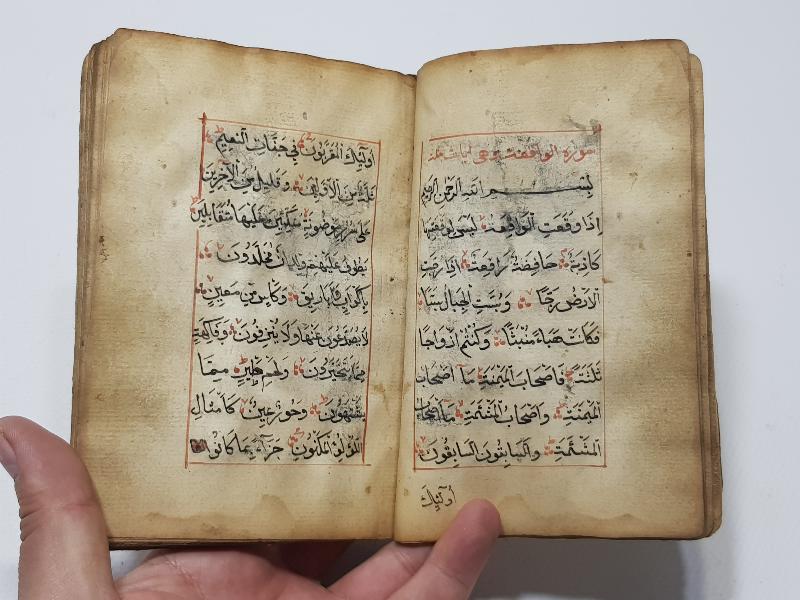 سورة الواقعة وهي
بسم الله الرحمن الرحيم
اذا وقعت الواقعة ليس لوقعتها
كاذبة خافضة رافعة اذا رجت
الارض رجا وبست الجبال بسا
فكانت هباء منبثا وكنتم ازواجا
ثلثة فاصحاب الميمنة ما اصحاب
الميمنة واصحاب المشئمة ما اصحاب
المشئمة والسابقون السابقون
اولئك
اولئك المقربون في جنات النعيم
ثلة من الاولين وقليل من الآخرين
على سرر موضونة متكئين عليها متقابلين
يطوف عليهم ولدان مخلدون
باكواب واباريق وكاس من معين
لا يصدعون عنها ولا ينزفون وفاكهة
مما يتخيرون ولحم طير مما
يشتهون وحور عين كامثال
اللؤلؤ المكنون جزاء بما كانوا